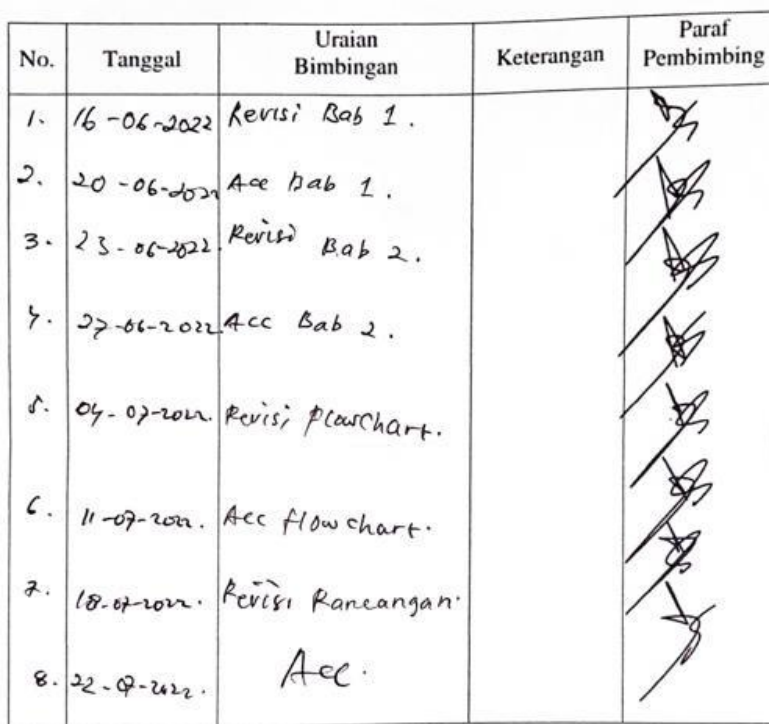 No. Tanggal Uraian Bimbingan Keterangan Paraf Pembimbing
1. 16-06-2022 Revisi Bab 1.
2. 20-06-2022 Acc Bab 1.
3. 23-06-2022. Revisi Bab 2.
4. 27-06-2022 Acc Bab 2.
5. 04-07-2022. Revisi Flowchart.
6. 11-07-2022. Acc flowchart.
7. 18-07-2022. Revisi Rancangan.
8. 22-07-2022. Acc.